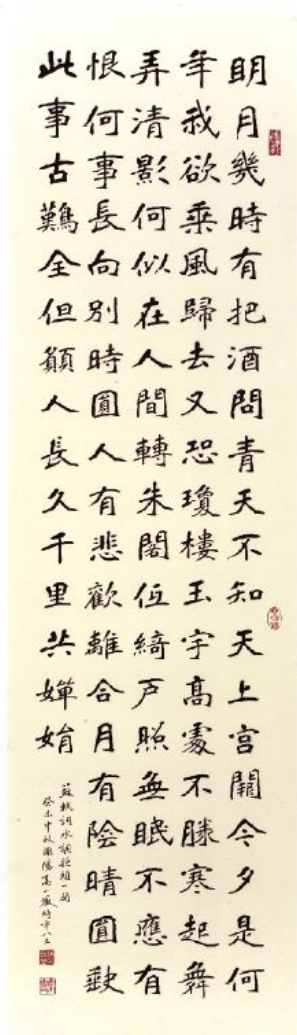 明月幾時有把酒問青天不知天上宮闕今夕是何
年我欲乘風歸去又恐瓊樓玉宇高處不勝寒起舞
弄清影何似在人間轉朱閣低綺戶照無眠不應有
恨何事長向別時圓人有悲歡離合月有陰晴圓缺
此事古難全但願人長久千里共嬋娟
蘇軾詞水調歌頭一闋
癸未中秋時年八五